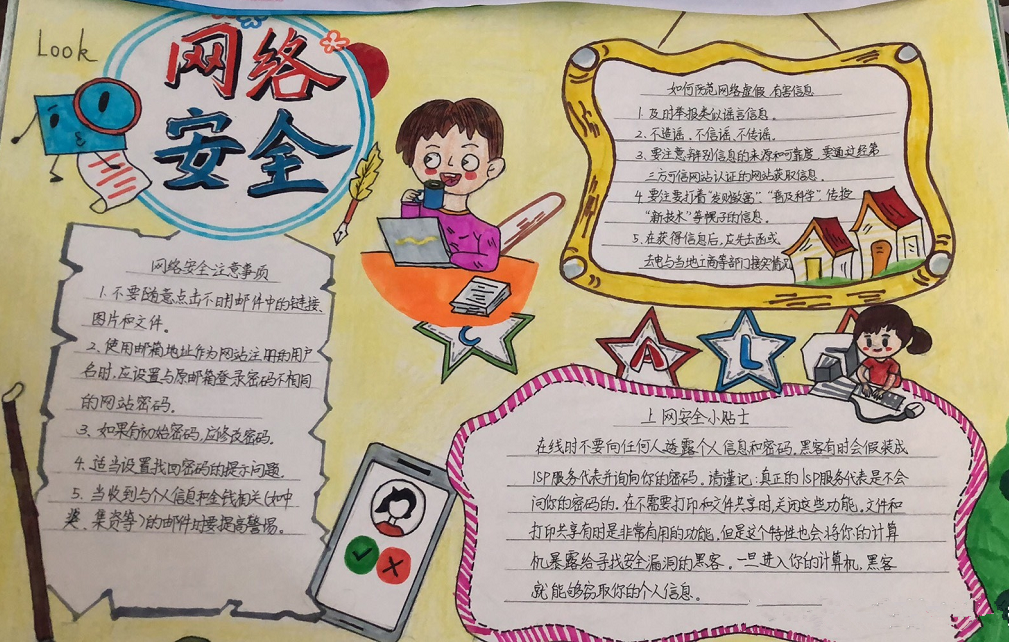 Look
网络
安全
网络安全注意事项
1. 不要随意点击不明邮件中的链接、
图片和文件。
2. 使用邮箱地址作为网站注册的用户
名时,应设置与原邮箱登录密码不相同
的网站密码。
3、如果有初始密码,应修改密码。
4. 适当设置找回密码的提示问题。
5. 当收到与个人信息和金钱相关(如中
奖、集资等)的邮件时要提高警惕。
如何防范网络虚假 有害信息
1. 及时举报类似谣言信息。
2. 不造谣、不信谣、不传谣。
3. 要注意辨别信息的来源和可靠度,要通过经第
三方可信网站认证的网站获取信息。
4. 要注要打着“发财致富”、“普及科学”、传授
“新技术”等幌子的信息。
5. 在获得信息后,应先去函或
去电与当地工商等部门 情况
C
A
L
上网安全小贴士
在线时不要向任何人透露个人信息和密码,黑客有时会假装成
ISP服务代表并询问你的密码。请谨记:真正的ISP服务代表是不会
问你的密码的。在不需要打印和文件共享时,关闭这些功能。文件和
打印共享有时是非常有用的功能,但是这个特性也会将你的计算
机暴露给寻找安全漏洞的黑客。一旦进入你的计算机,黑客
就能够窃取你的个人信息。